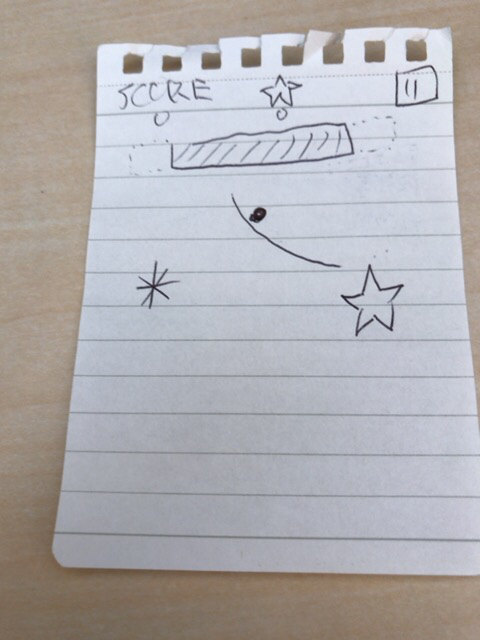 SCORE
0 0